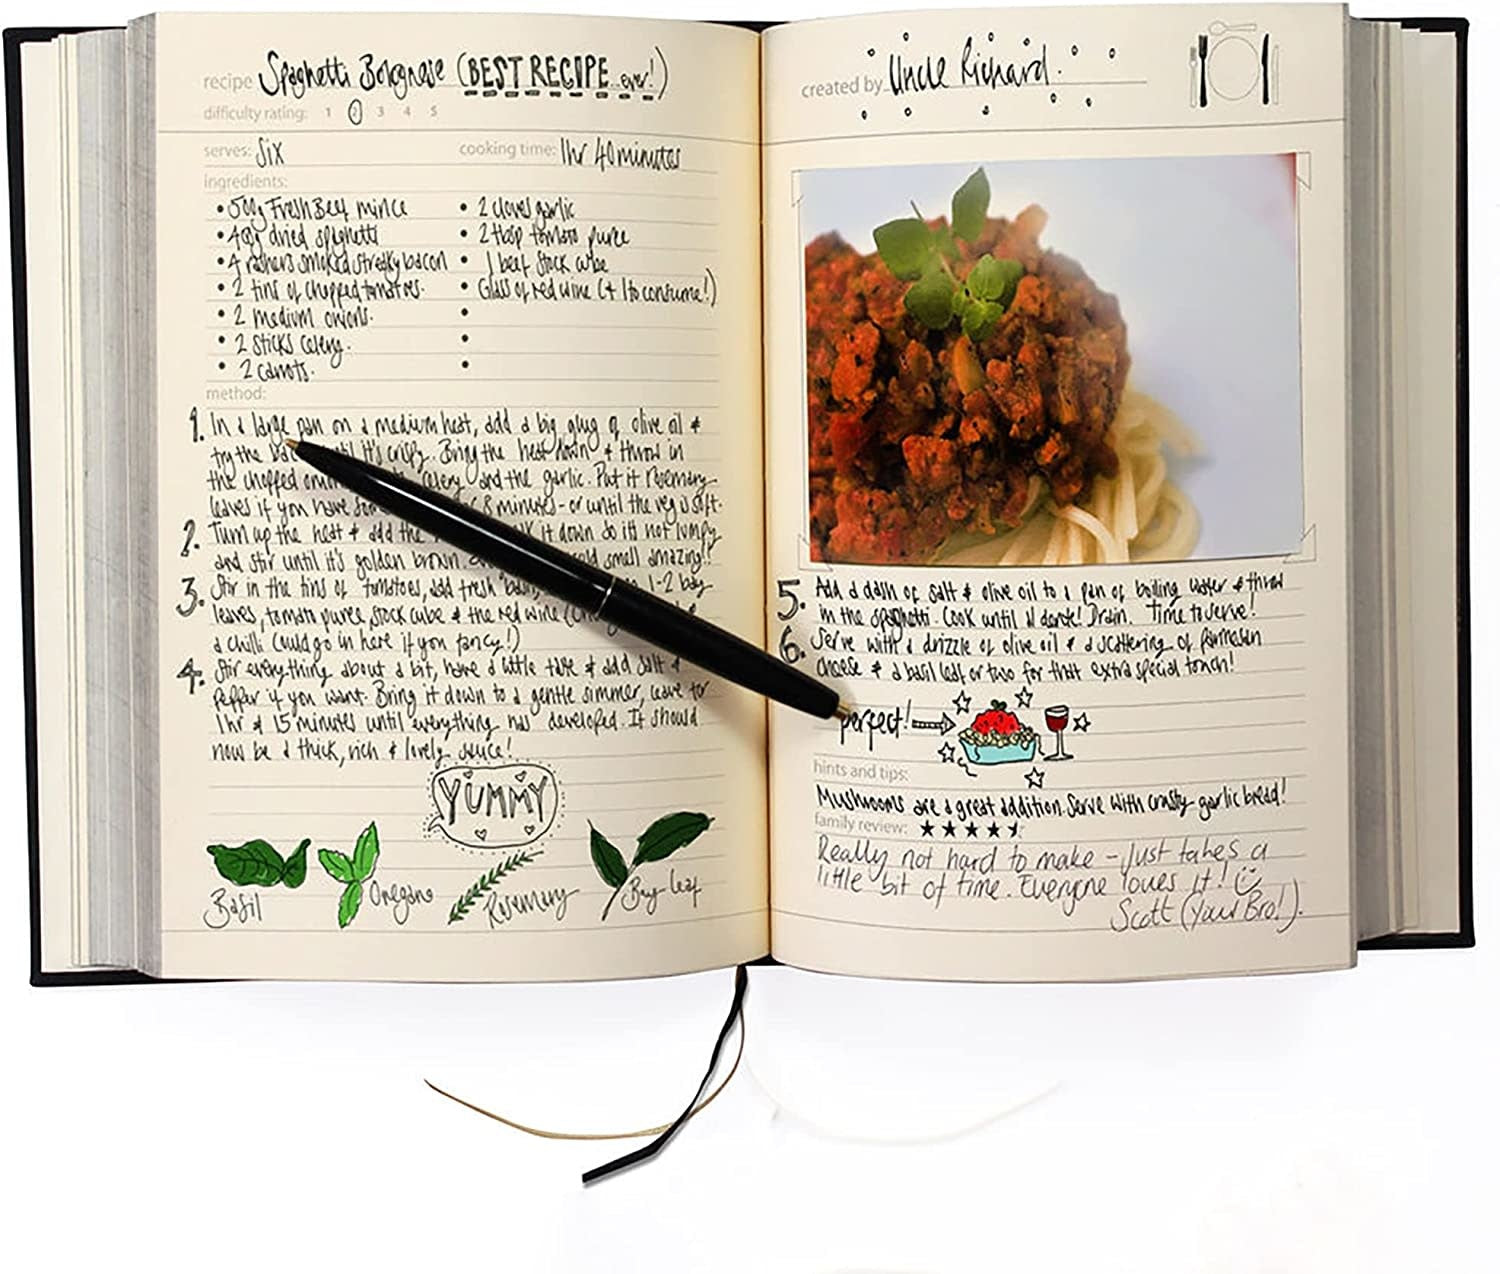 recipe Spaghetti Bolognase (BEST RECIPE...ever!)
difficulty rating: 1 2 3 4 5
serves: Six cooking time: 1hr 40minutes
ingredients:
• 500g Fresh Beef mince
• 400g dried spaghetti
• 4 rashers smoked streaky bacon
• 2 tins of chopped tomatoes.
• 2 medium onions.
• 2 sticks celery.
• 2 carrots.
• 2 cloves garlic
• 2 tbsp tomato puree
• 1 beef stock cube
• Glass of red wine (+ 1 to consume!)
•
•
•
method:
1. In a large pan on a medium heat, add a big glug of olive oil &
fry the until it's crispy. Bring the heat down & throw in
the chopped celery and the garlic. Put it rosemary
leaves if you have 8 minutes - or until the veg is soft.
2. Turn up the heat & add the it down so it's not lumpy
and stir until it's golden brown. smell amazing!!
3. Stir in the tins of tomatoes, add fresh basil, 1-2 bay
leaves, tomato puree, stock cube & the red wine
a chilli could go in here if you fancy!)
4. Stir everything about a bit, have a little taste & add salt &
pepper if you want. Bring it down to a gentle simmer, leave for
1hr & 15 minutes until everything has developed. It should
now be a thick, rich & lovely sauce!
YUMMY
Basil Oregano Rosemary Bay-leaf
created by Uncle Richard.
5. Add a dash of salt & olive oil to a pan of boiling water & throw
in the spaghetti. Cook until al dente! Drain. Time to serve!
6. Serve with a drizzle of olive oil & a scattering of parmesan
cheese & a basil leaf or two for that extra special touch!
perfect!
hints and tips:
Mushrooms are a great addition. Serve with crusty garlic bread!
family review:
Really not hard to make - just takes a
little bit of time. Everyone loves it!
Scott (your Bro!).